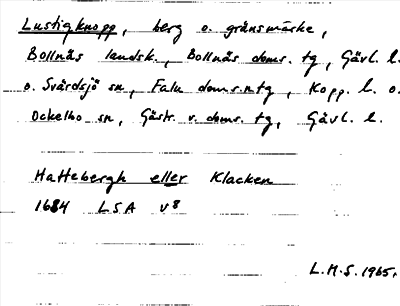 Lustigknopp, berg o. gränsmärke,
Bollnäs landsk., Bollnäs doms. tg, Gävl. l.
o. Svärdsjö sn, Falu doms.ntg, Kopp. l. o.
Ockelbo sn, Gästr. v. doms. tg, Gävl. l.
Hattebergh eller Klacken
1684 LSA v8
L.H.S. 1965.